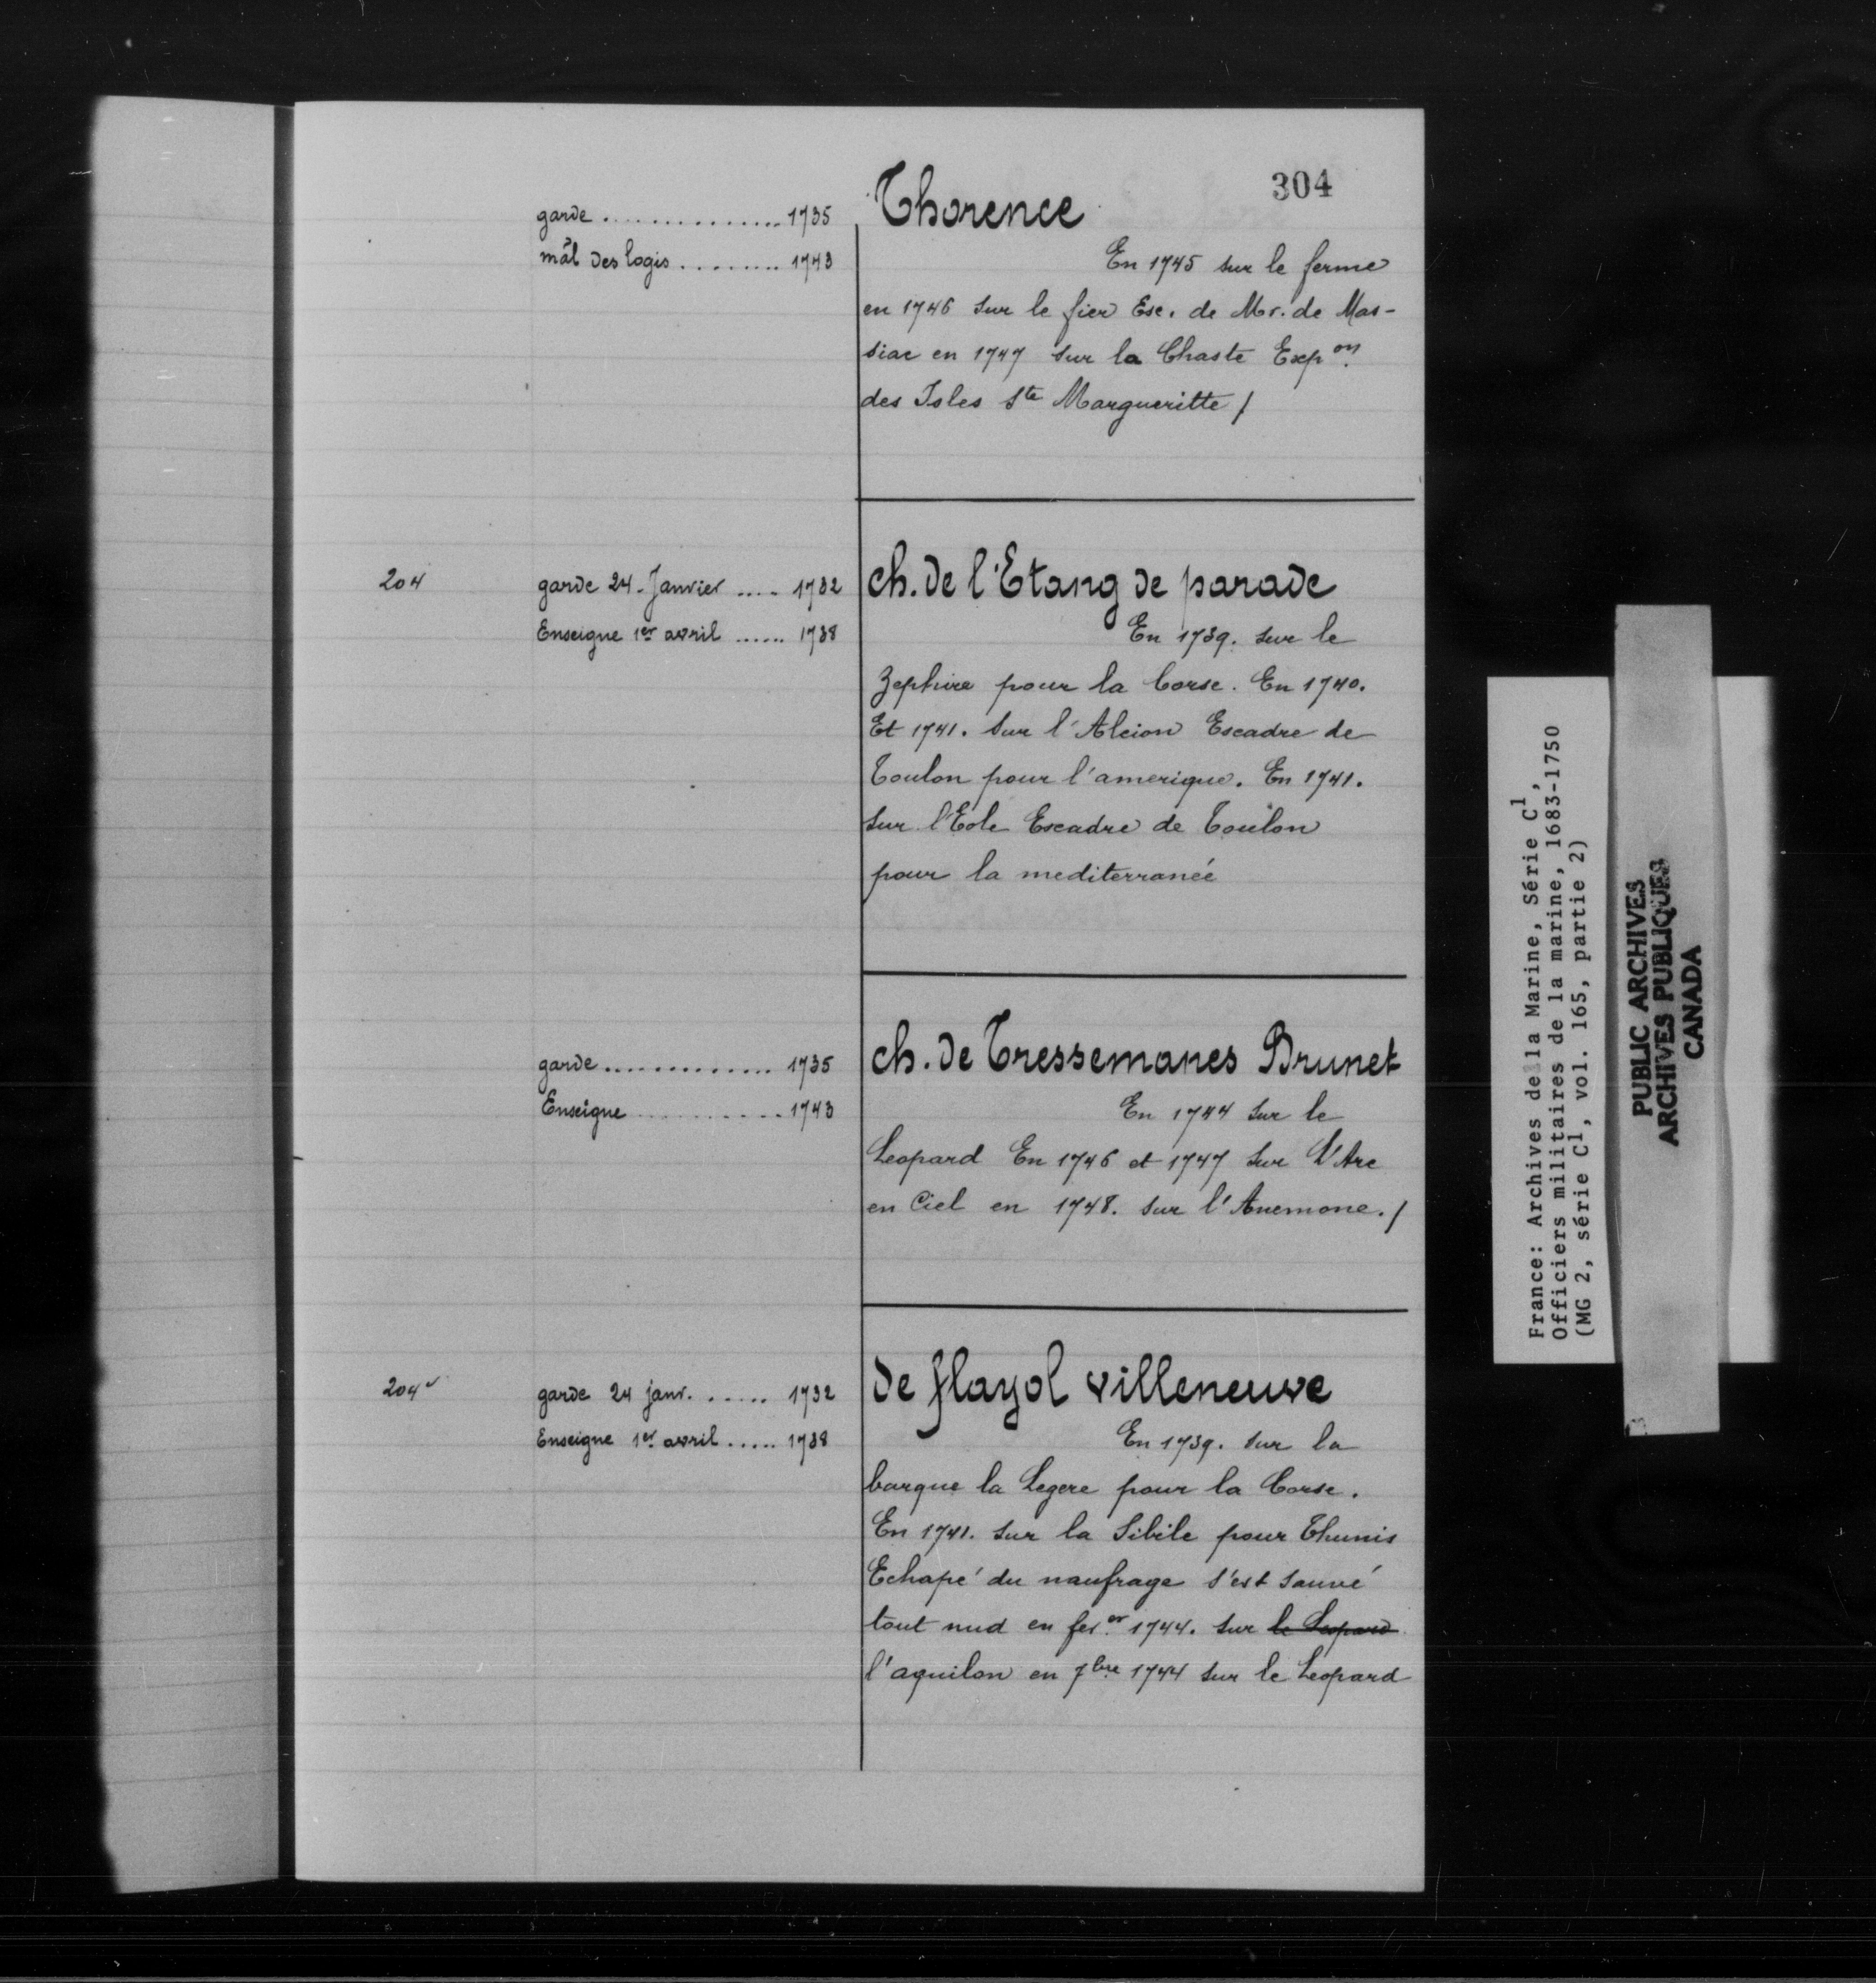 304
garde ............... 1735
mâl des logis ......... 1743
Thorence
En 1745 sur le ferme
en 1746 sur le fier Esc. de Mr. de Mas-
siac en 1747 sur la Chaste Expon.
des Isles Ste Margueritte /
204
garde 24. Janvier .... 1732
Enseigne 1er avril ...... 1738
ch. de l'Etang de parade
En 1739. sur le
Zephire pour la Corse. En 1740.
Et 1741. sur l'Alcion Escadre de
Toulon pour l'amerique. En 1741.
sur l'Eole Escadre de Toulon
pour la mediterranée
garde .............. 1735
Enseigne ........... 1743
ch. de Tressemanes Brunet
En 1744 sur le
Leopard En 1746 et 1747 sur L'Arc
en Ciel en 1748. sur l'Anemone. /
204v
garde 24 janv. ...... 1732
Enseigne 1er avril ..... 1738
de flayol villeneuve
En 1739. sur la
barque la Legere pour la Corse.
En 1741. sur la Sibile pour Thunis
Echapé du naufrage s'est sauvé
tout nud en fer.er 1744. sur le Leopard
l'aquilon en 7bre 1744 sur le Leopard
France: Archives de la Marine, Série C1,
Officiers militaires de la marine, 1683-1750
(MG 2, série C1, vol. 165, partie 2)
PUBLIC ARCHIVES
ARCHIVES PUBLIQUES
CANADA